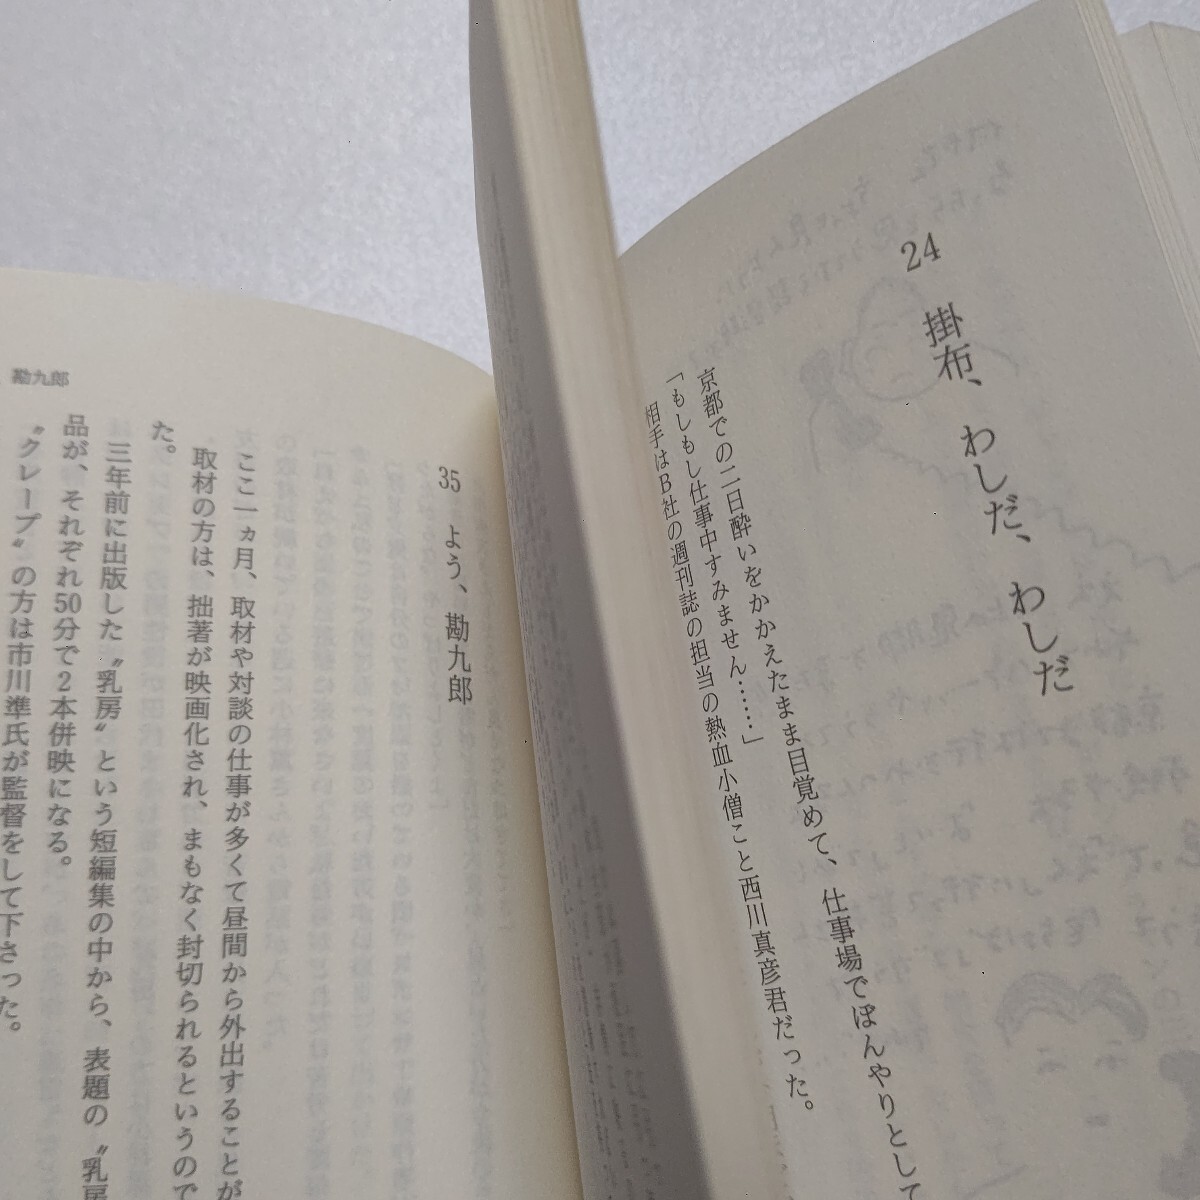 24 掛布、わしだ、わしだ
京都での二日酔いをかかえたまま目覚めて、仕事場でぼんやりとして
「もしもし仕事中すみません……」
相手はB社の週刊誌の担当の熱血小僧こと西川真彦君だった。
35 よう、勘九郎
ここ一ヵ月、取材や対談の仕事が多くて昼間から外出することが
取材の方は、拙著が映画化され、まもなく封切られるというので
た。
三年前に出版した〝乳房〟という短編集の中から、表題の〝乳房
品が、それぞれ50分で2本併映になる。
〝クレープ〟の方は市川準氏が監督をして下さった。
勘九郎